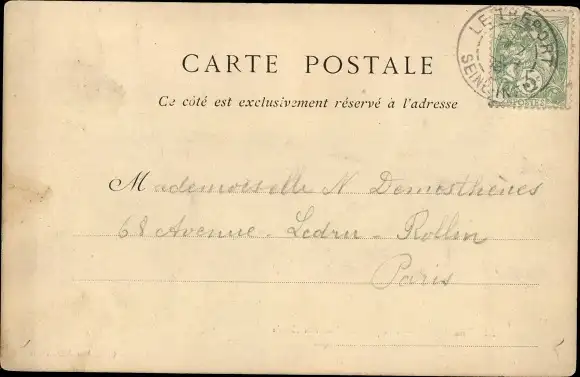 CARTE POSTALE
Ce côté est exclusivement réservé à l'adresse
LE TREPORT
SEINE
5
Mademoiselle N Demesthènes
68 Avenue - Ledru - Rollin
Paris